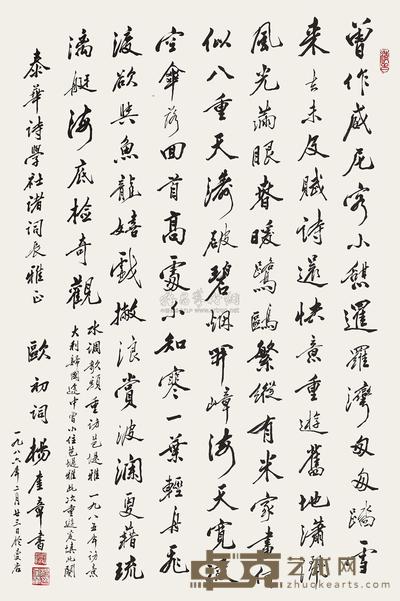 曾作威尼客小憩暹罗湾匆匆踏雪
来去未及赋诗还快意重游旧地潇洒
风光满眼春暖鹭鸥繁纵有米家画
似八重天涛破碧烟开嶂海天宽
空伞落回首高处不知寒一叶轻舟飛
渡欲与鱼龙嬉戏掀浪赏波澜更藉琉
璃艇海底检奇观
水调歌头重访芭堤雅一九八五年访意
大利归国途中曾小住芭堤雅此次重游爰填此阕
泰华诗学社诸词长雅正
欧初词杨奎章书
一九八六年二月廿三日於
卓克艺术网
www.zhuokearts.com